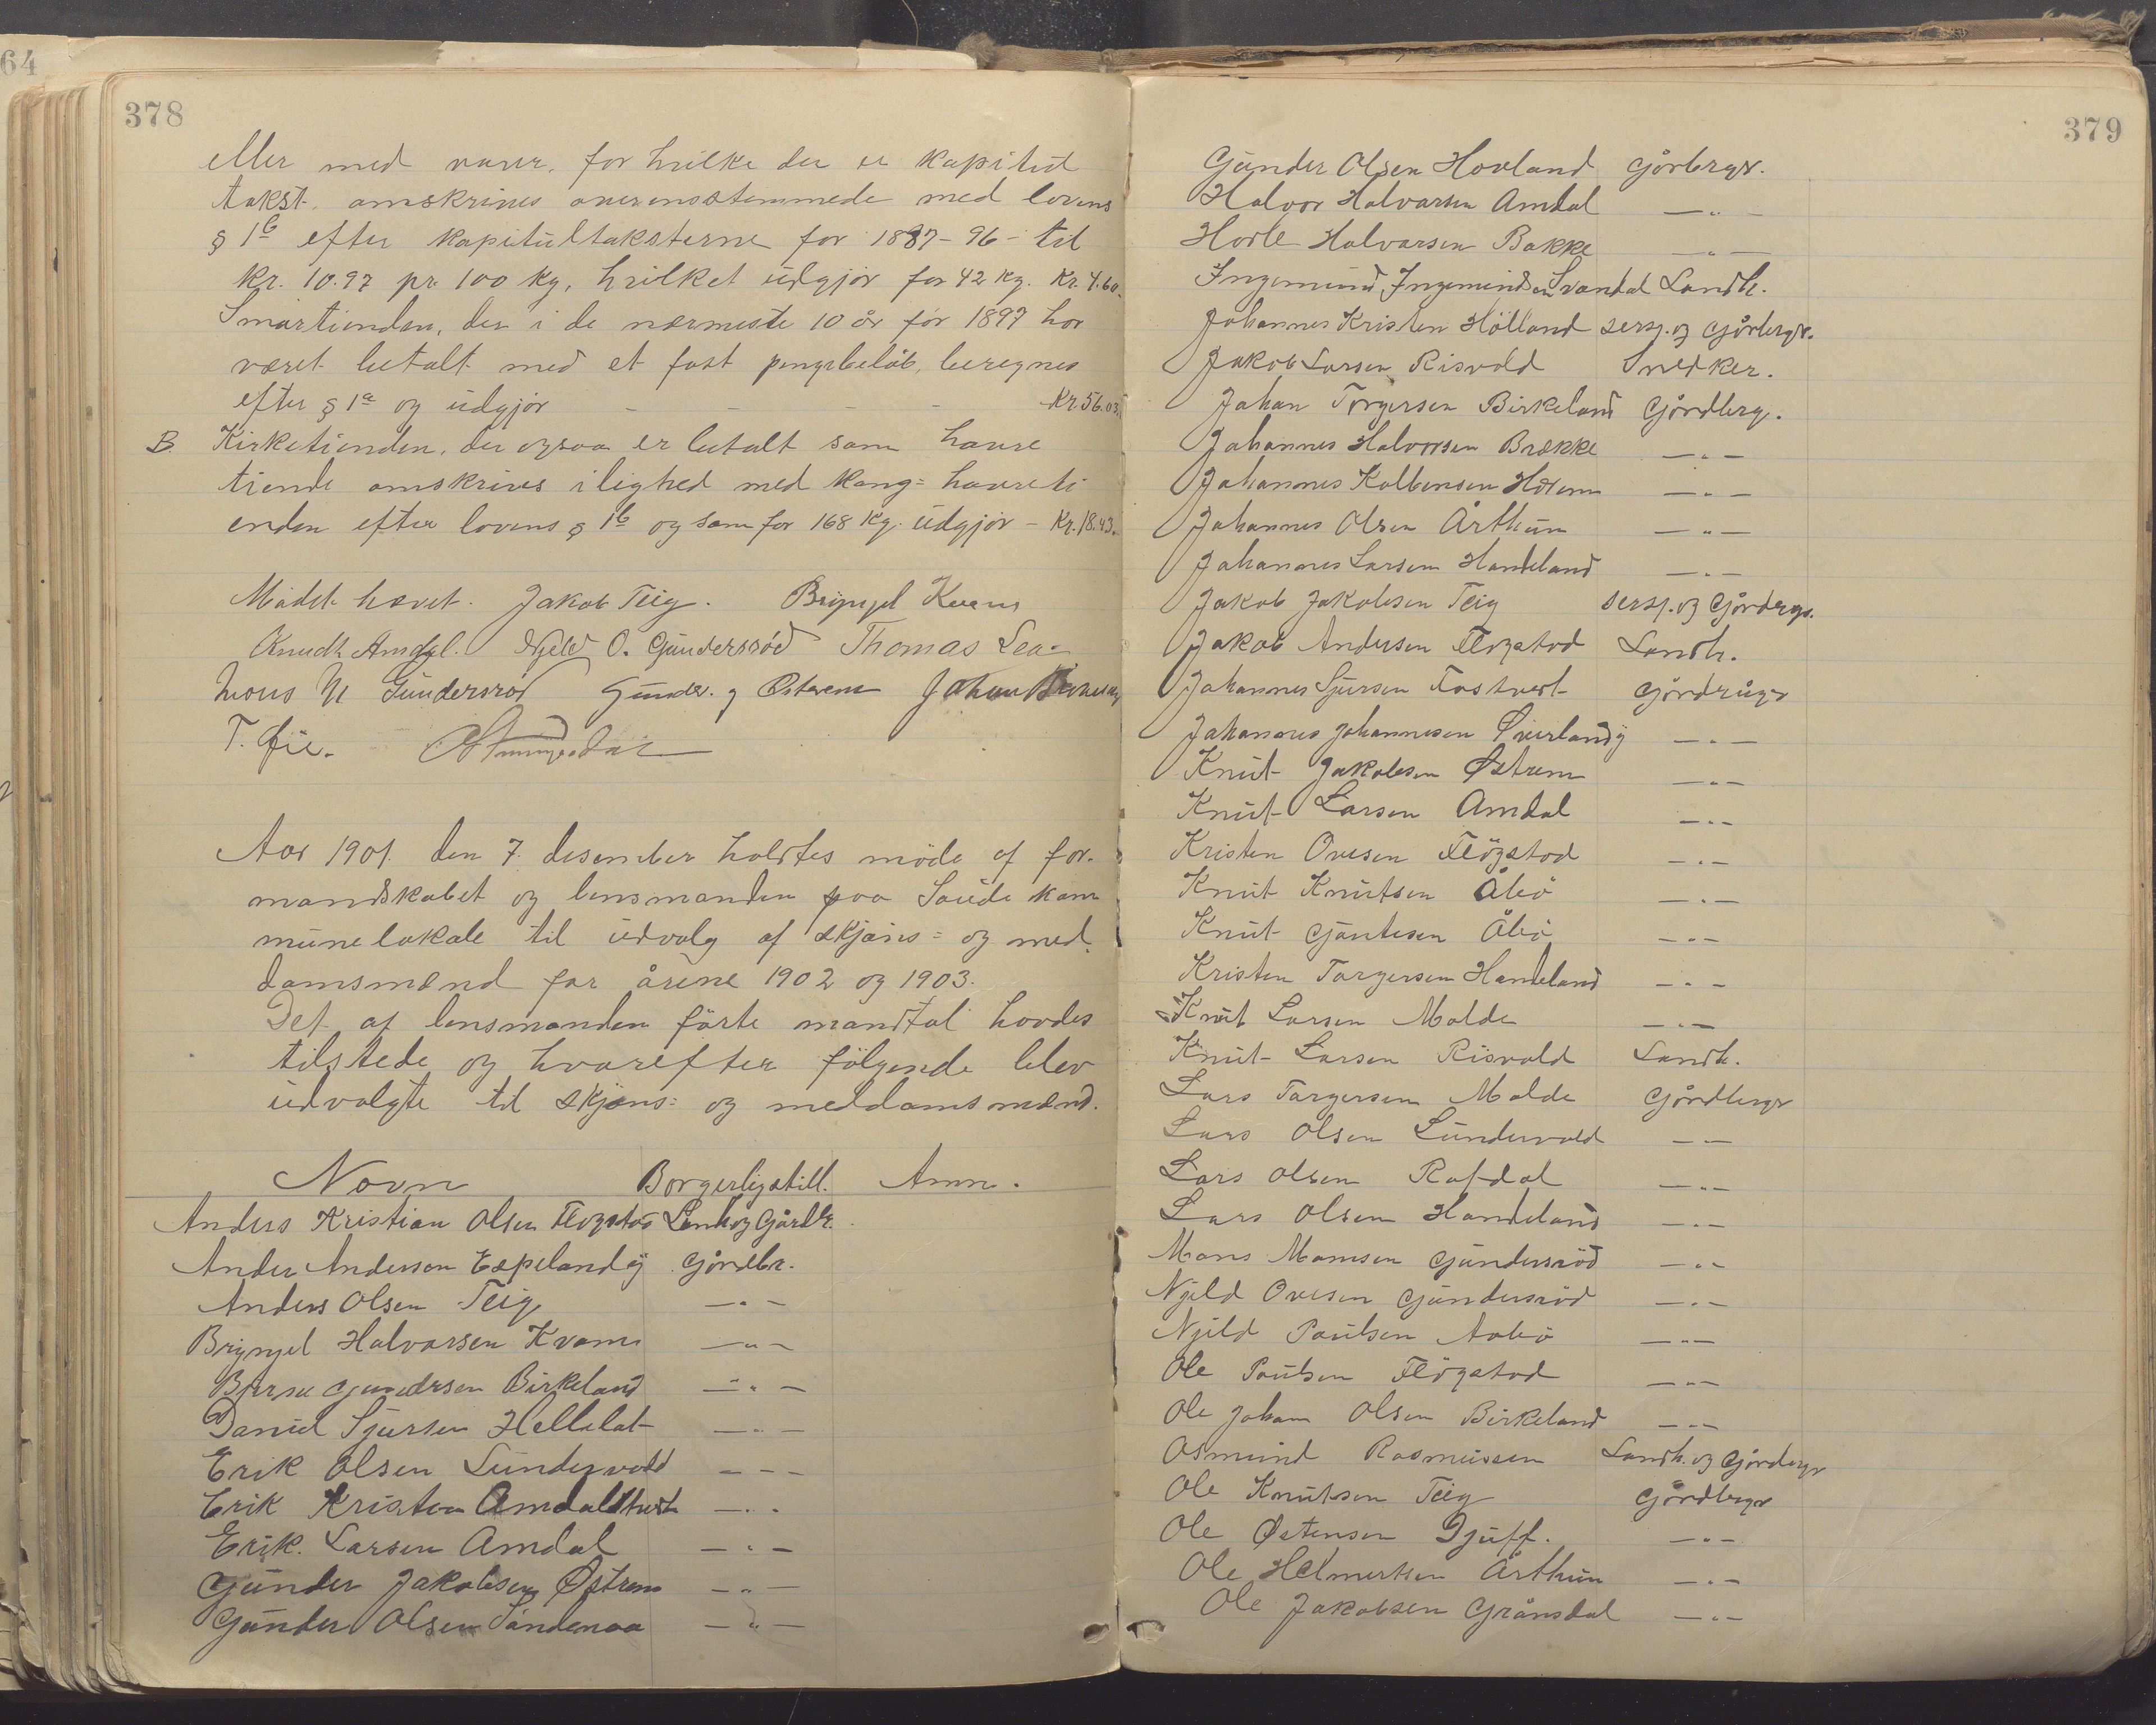 64
378
eller med varer, for hvilke der er kapitul
takst, omskrives overensstemmede med lovens
§ 1b efter kapitultaksterne for 1887-96 - til
kr. 10.97 pr. 100 kg, hvilket udgjør for 42 kg. Kr. 4.60.
Smørtienden, der i de nærmeste 10 år før 1897 har
været betalt med et fast pengebeløb, beregnes
efter § 1a og udgjør - - - - Kr. 56.03.
B. Kirketienden, der ogsaa er betalt som havre
tiende omskrives i lighed med kong= havreti
enden efter lovens § 1b og som for 168 kg. udgjør - Kr. 18.43.
Mødet hævet. Jakob Teig. Brynjel Kvam
Knudt Amdal. Njeld O. Gundersrød Thomas Lea
Mons M Gundersrød Gunder. J Østrem Johan Birkeland
T. Fie.
Aar 1901. den 7. desember holdtes møde af for-
mandskabet og lensmanden paa Saude kom
munelokale til udvalg af skjøns= og med-
domsmænd for årene 1902 og 1903.
Det af lensmanden førte mandtal havdes
tilstede og hvorefter følgende blev
udvalgte til skjøns= og meddomsmænd.
Navn Borgerligstill. Anm.
Anders Kristian Olsen Fløgstad Landh og Gårdb.
Anders Anderson Espelandsj Gårdbr.
Anders Olsen Teig —"—
Brynjel Halvorsen Kvam —"—
Børse Gundersen Birkeland —"—
Daniel Sjursen Hellelat —"—
Erik Olsen Sundervold — — —
Erik Kristen Amdaltvet —"—
Erik. Larsen Amdal —"—
Gunder Jakobsen Østrem —"—
Gunder Olsen Sandenaa —"—
379
Gunder Olsen Hovland Gårbrgr.
Halvor Halvorsen Amdal —"—
Horle Halvorsen Bakke —"—
Ingemund Ingemundsen Svandal Landh.
Johannes Kristen Hølland sersj. og Gårbrgr.
Jakob Larsen Risvold Snedker.
Johan Torgersen Birkeland Gårdbrg.
Johannes Halvorsen Brekke —"—
Johannes Kolbensen Hørem —"—
Johannes Olsen Årthun —"—
Johannes Larsen Handeland —"—
Jakob Jakobsen Teig sersj. og Gårdbrgr.
Jakob Andersen Fløgstad Landh.
Johannes Sjursen Fosstveit Gårdbrugr
Johannes Johannesen Øverlandsj —"—
Knut Jakobsen Østrem —"—
Knut Larsen Amdal —"—
Kristen Ovesen Fløgstad —"—
Knut Knutsen Åbø —"—
Knut Gautesen Åbø —"—
Kristen Torgersen Handeland —"—
Knut Larsen Molde —"—
Knut Larsen Risvold Landh.
Lars Torgersen Molde Gårdbrgr
Lars Olsen Sundervold —"—
Lars Olsen Rafdal —"—
Lars Olsen Handeland —"—
Mons Monsen Gundersrød —"—
Njeld Ovesen Gundersrød —"—
Njeld Paulsen Aabø —"—
Ole Paulsen Fløgstad —"—
Ole Johan Olsen Birkeland —"—
Osmund Rasmussen Landh. og Gårdbrgr
Ole Knutsen Teig Gårdbrgr
Ole Østensen Djuff. —"—
Ole Helmertsen Årthun —"—
Ole Jakobsen Grånsdal —"—